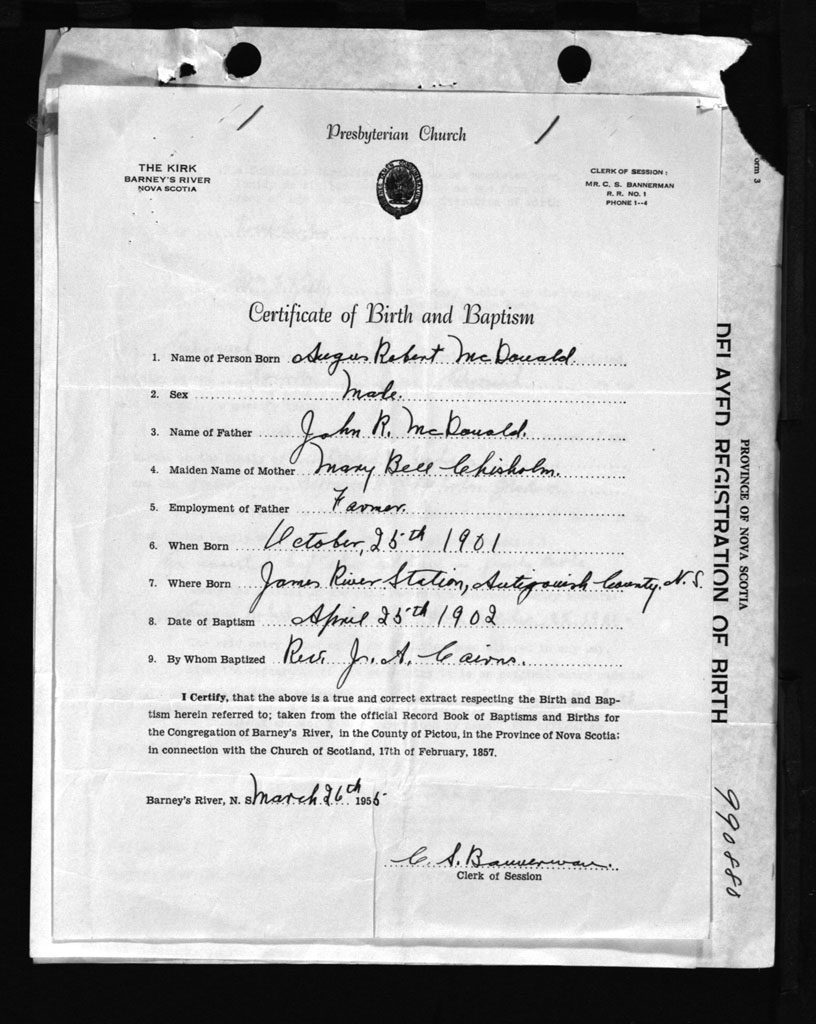 Presbyterian Church
THE KIRK
BARNEY'S RIVER
NOVA SCOTIA
CLERK OF SESSION:
MR. C. S. BANNERMAN
R. R. NO. 1
PHONE 1--4
Certificate of Birth and Baptism
1. Name of Person Born Angus Robert McDonald
2. Sex Male.
3. Name of Father John R. McDonald.
4. Maiden Name of Mother Mary Bell Chisholm.
5. Employment of Father Farmer.
6. When Born October, 25th 1901
7. Where Born James River Station, Antigonish County. N. S.
8. Date of Baptism April 25th 1902
9. By Whom Baptized Rev. J. A. Cairns.
I Certify, that the above is a true and correct extract respecting the Birth and Bap-
tism herein referred to; taken from the official Record Book of Baptisms and Births for
the Congregation of Barney's River, in the County of Pictou, in the Province of Nova Scotia:
in connection with the Church of Scotland, 17th of February, 1857.
Barney's River, N. S. March 26th 1955
C. S. Bannerman.
Clerk of Session
orm 3
PROVINCE OF NOVA SCOTIA
DELAYED REGISTRATION OF BIRTH
990880